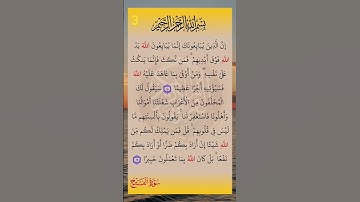 3
بسم الله الرحمن الرحيم
إِنَّ الَّذِينَ يُبَايِعُونَكَ إِنَّمَا يُبَايِعُونَ اللَّهَ يَدُ
اللَّهِ فَوْقَ أَيْدِيهِمْ فَمَن نَّكَثَ فَإِنَّمَا يَنكُثُ
عَلَىٰ نَفْسِهِ وَمَنْ أَوْفَىٰ بِمَا عَاهَدَ عَلَيْهُ اللَّهَ
فَسَيُؤْتِيهِ أَجْرًا عَظِيمًا سَيَقُولُ لَكَ
الْمُخَلَّفُونَ مِنَ الْأَعْرَابِ شَغَلَتْنَا أَمْوَالُنَا
وَأَهْلُونَا فَاسْتَغْفِرْ لَنَا يَقُولُونَ بِأَلْسِنَتِهِم مَّا
لَيْسَ فِي قُلُوبِهِمْ قُلْ فَمَن يَمْلِكُ لَكُم مِّنَ
اللَّهِ شَيْئًا إِنْ أَرَادَ بِكُمْ ضَرًّا أَوْ أَرَادَ بِكُمْ
نَفْعًا بَلْ كَانَ اللَّهُ بِمَا تَعْمَلُونَ خَبِيرًا
سورة الفتح